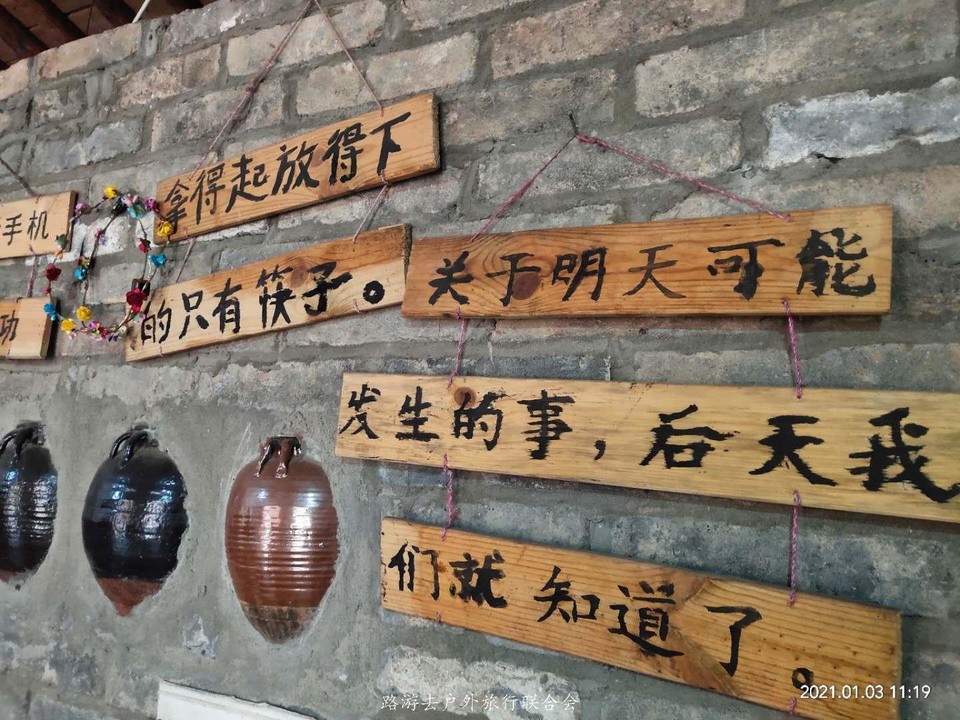 手机
功
拿得起放得下
的只有筷子。
关于明天可能
发生的事，后天我
们就知道了。
路游去户外旅行联合会
2021.01.03 11:19